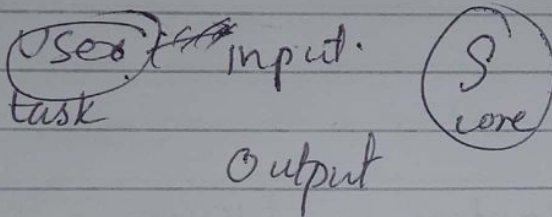 User input.
task
Score
Output